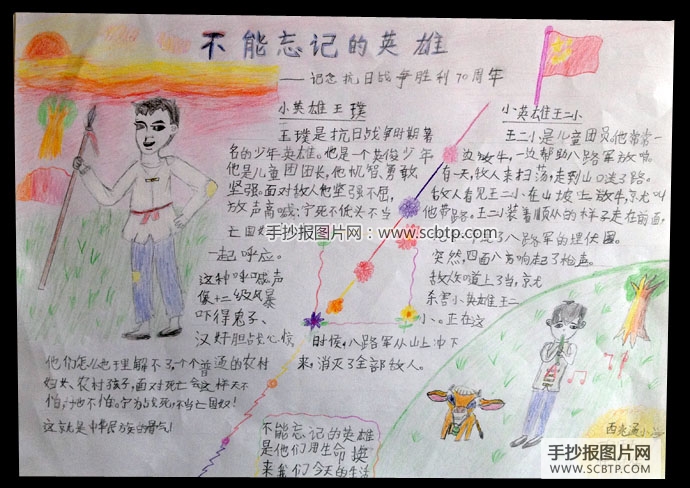 不能忘记的英雄
——记念抗日战争胜利70周年
小英雄王璞
王璞是抗日战争时期著
名的少年英雄。他是一个英俊少年
他是儿童团团长,他机智、勇敢
坚强。面对敌人他坚强不屈,
放声高喊:宁死不低头不当
亡国奴
一起呼应。
这种呼喊声
像十二级风暴
吓得鬼子、
汉奸胆战心惊
他们怎么也理解不了,个个普通的农村
妇女、农村孩子,面对死亡会这样天不
怕,地不怕。宁为战死,不当亡国奴!
这就是中华民族的骨气!
小英雄王二小
王二小是儿童团员,他常常一
边放牛,一边帮助八路军放哨
有一天,敌人来扫荡,走到山口迷了路。
敌人看见王二小在山坡上放牛,就叫
他带路。王二小装着顺从的样子走在前面,
了八路军的埋伏圈。
突然,四面八方响起了枪声。
敌人知道上了当,就
杀害小英雄王二
小。正在这
时候,八路军从山上冲下
来,消灭了全部敌人。
不能忘记的英雄
是他们用生命换
来我们今天的生活
手抄报图片网:www.scbtp.com
手抄报图片网
WWW.SCBTP.COM